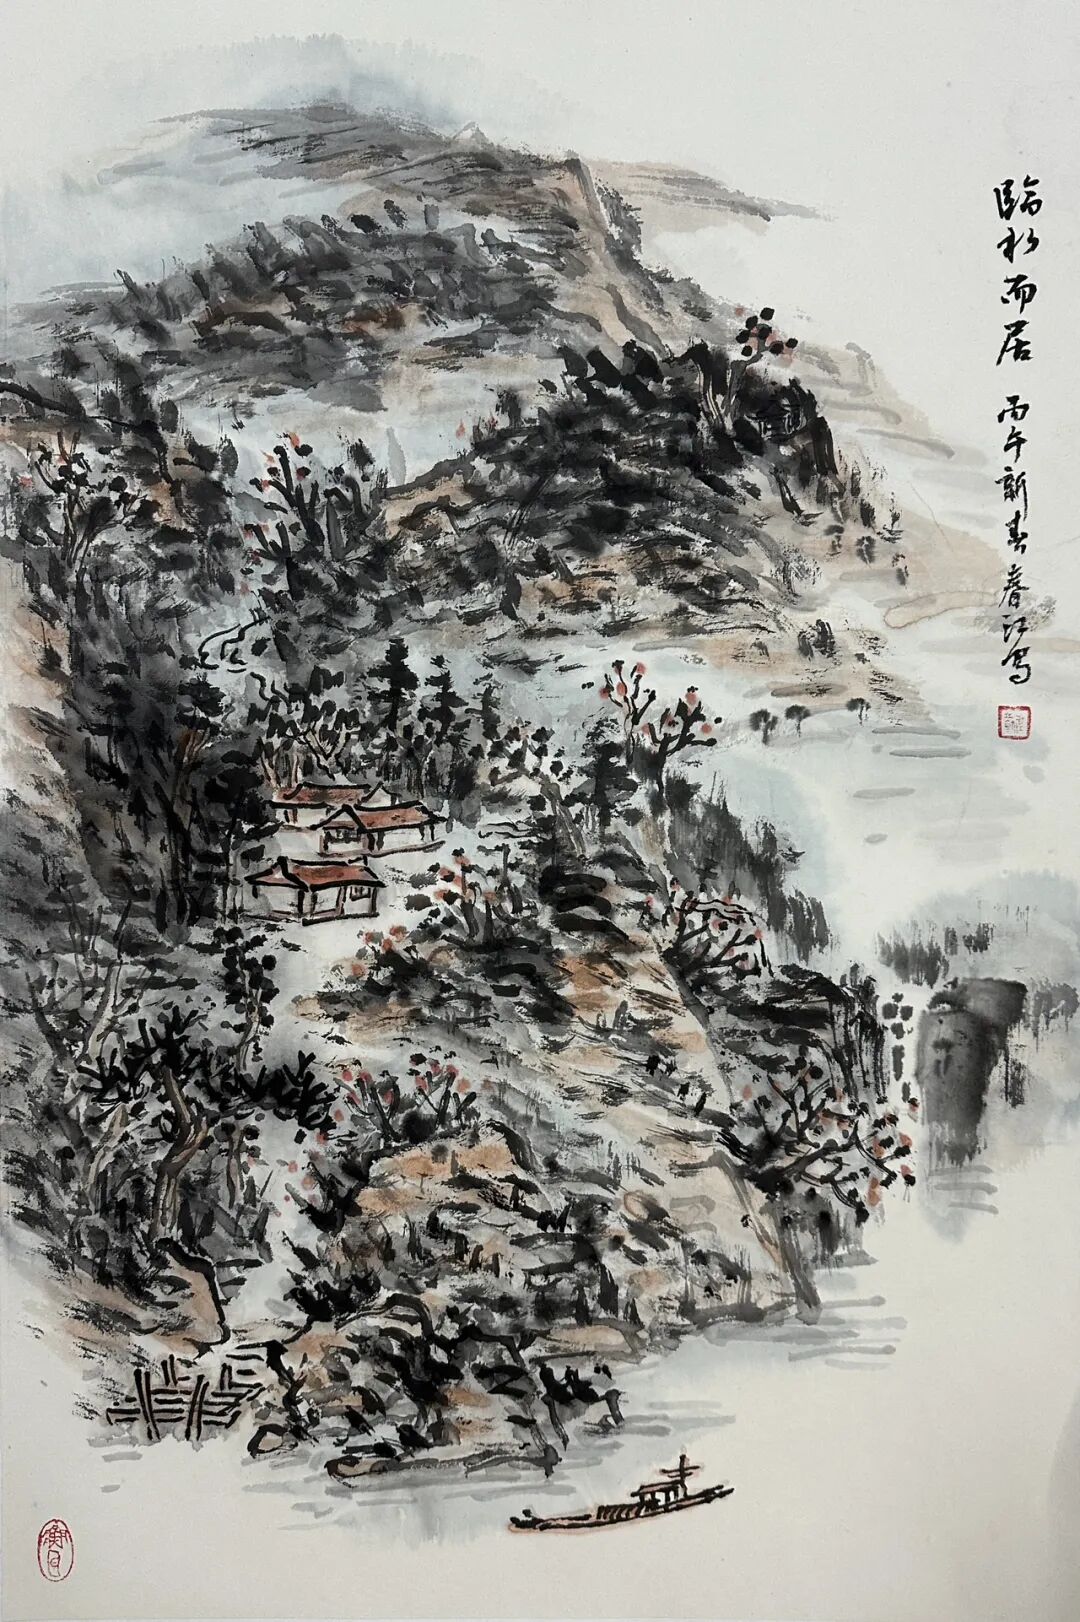 臨松而居 丙午新春 春江写